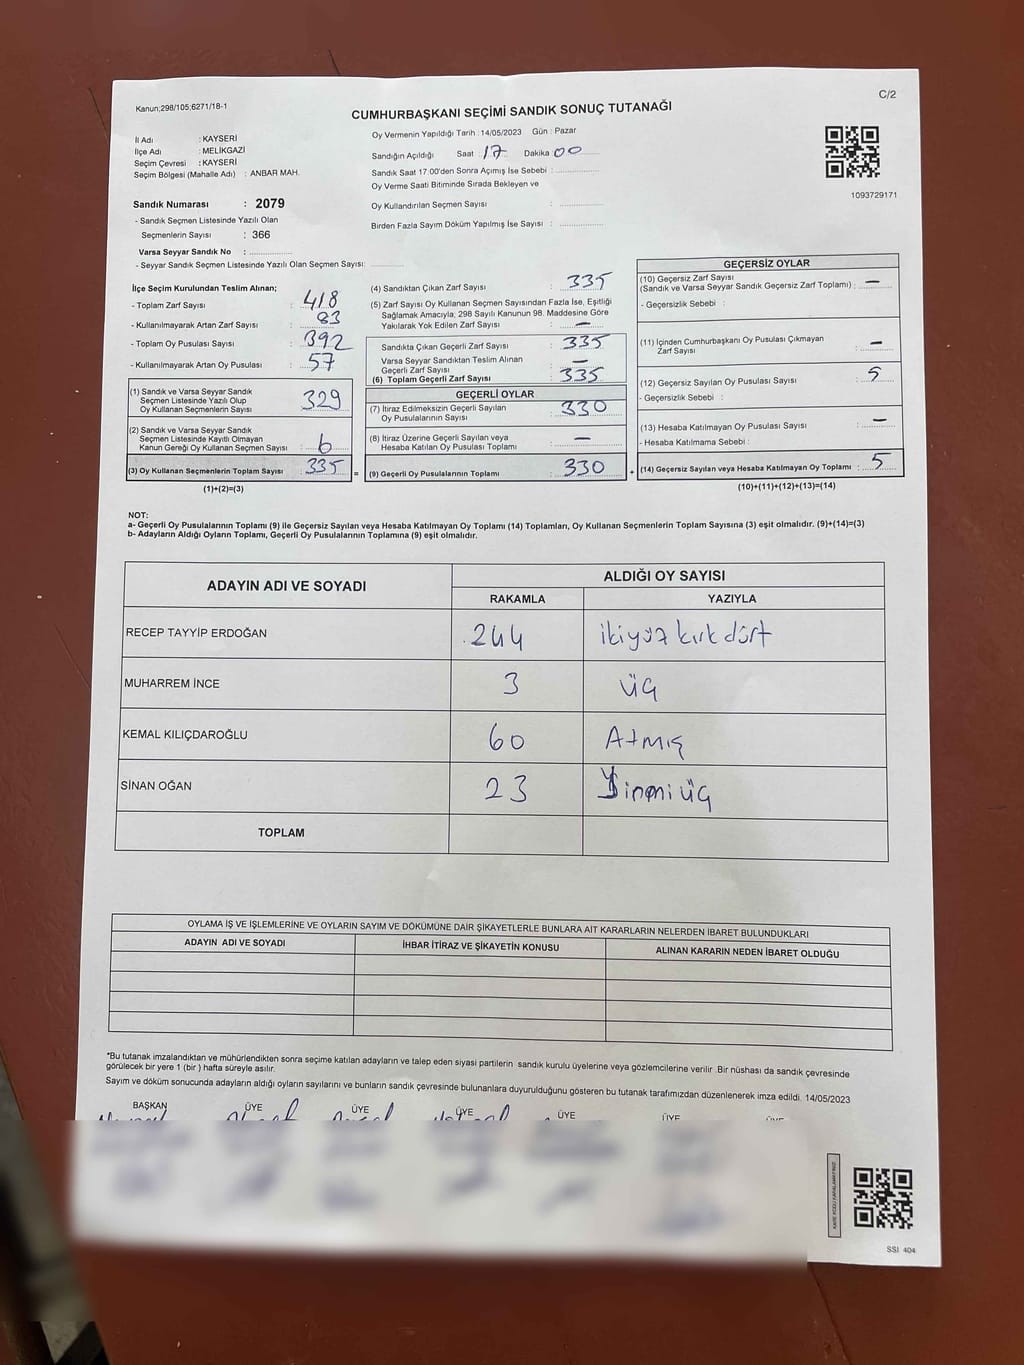 Kanun;298/105,6271/18-1
C/2
CUMHURBAŞKANI SEÇİMİ SANDIK SONUÇ TUTANAĞI
İl Adı : KAYSERİ
İlçe Adı : MELİKGAZİ
Seçim Çevresi : KAYSERİ
Seçim Bölgesi (Mahalle Adı) : ANBAR MAH.
Sandık Numarası : 2079
- Sandık Seçmen Listesinde Yazılı Olan
Seçmenlerin Sayısı : 366
Varsa Seyyar Sandık No :
- Seyyar Sandık Seçmen Listesinde Yazılı Olan Seçmen Sayısı:
Oy Vermenin Yapıldığı Tarih : 14/05/2023 Gün : Pazar
Sandığın Açıldığı Saat 17 Dakika 00
Sandık Saat 17:00'den Sonra Açımış İse Sebebi :
Oy Verme Saati Bitiminde Sırada Bekleyen ve
Oy Kullandırılan Seçmen Sayısı :
Birden Fazla Sayım Döküm Yapılmış İse Sayısı :
1093729171
İlçe Seçim Kurulundan Teslim Alınan;
- Toplam Zarf Sayısı : 418
- Kullanılmayarak Artan Zarf Sayısı : 83
- Toplam Oy Pusulası Sayısı : 392
- Kullanılmayarak Artan Oy Pusulası : 57
(1) Sandık ve Varsa Seyyar Sandık
Seçmen Listesinde Yazılı Olup
Oy Kullanan Seçmenlerin Sayısı : 329
(2) Sandık ve Varsa Seyyar Sandık
Seçmen Listesinde Kayıtlı Olmayan
Kanun Gereği Oy Kullanan Seçmen Sayısı : 6
(3) Oy Kullanan Seçmenlerin Toplam Sayısı : 335
(1)+(2)=(3)
(4) Sandıktan Çıkan Zarf Sayısı : 335
(5) Zarf Sayısı Oy Kullanan Seçmen Sayısından Fazla İse, Eşitliği
Sağlamak Amacıyla, 298 Sayılı Kanunun 98. Maddesine Göre
Yakılarak Yok Edilen Zarf Sayısı : —
Sandıkta Çıkan Geçerli Zarf Sayısı : 335
Varsa Seyyar Sandıktan Teslim Alınan
Geçerli Zarf Sayısı : —
(6) Toplam Geçerli Zarf Sayısı : 335
GEÇERLİ OYLAR
(7) İtiraz Edilmeksizin Geçerli Sayılan
Oy Pusulalarının Sayısı : 330
(8) İtiraz Üzerine Geçerli Sayılan veya
Hesaba Katılan Oy Pusulası Toplamı : —
(9) Geçerli Oy Pusulalarının Toplamı : 330
GEÇERSİZ OYLAR
(10) Geçersiz Zarf Sayısı
(Sandık ve Varsa Seyyar Sandık Geçersiz Zarf Toplamı) : —
- Geçersizlik Sebebi :
(11) İçinden Cumhurbaşkanı Oy Pusulası Çıkmayan
Zarf Sayısı : —
(12) Geçersiz Sayılan Oy Pusulası Sayısı : 5
- Geçersizlik Sebebi :
(13) Hesaba Katılmayan Oy Pusulası Sayısı : —
- Hesaba Katılmama Sebebi :
(14) Geçersiz Sayılan veya Hesaba Katılmayan Oy Toplamı : 5
(10)+(11)+(12)+(13)=(14)
NOT:
a- Geçerli Oy Pusulalarının Toplamı (9) ile Geçersiz Sayılan veya Hesaba Katılmayan Oy Toplamı (14) Toplamları, Oy Kullanan Seçmenlerin Toplam Sayısına (3) eşit olmalıdır. (9)+(14)=(3)
b- Adayların Aldığı Oyların Toplamı, Geçerli Oy Pusulalarının Toplamına (9) eşit olmalıdır.
ADAYIN ADI VE SOYADI
ALDIĞI OY SAYISI
RAKAMLA YAZIYLA
RECEP TAYYİP ERDOĞAN 244 ikiyüz kırk dört
MUHARREM İNCE 3 üç
KEMAL KILIÇDAROĞLU 60 Atmış
SİNAN OĞAN 23 Yirmi üç
TOPLAM
OYLAMA İŞ VE İŞLEMLERİNE VE OYLARIN SAYIM VE DÖKÜMÜNE DAİR ŞİKAYETLERLE BUNLARA AİT KARARLARIN NELERDEN İBARET BULUNDUKLARI
ADAYIN ADI VE SOYADI İHBAR İTİRAZ VE ŞİKAYETİN KONUSU ALINAN KARARIN NEDEN İBARET OLDUĞU
*Bu tutanak imzalandıktan ve mühürlendikten sonra seçime katılan adayların ve talep eden siyasi partilerin sandık kurulu üyelerine veya gözlemcilerine verilir. Bir nüshası da sandık çevresinde
görülecek bir yere 1 (bir ) hafta süreyle asılır.
Sayım ve döküm sonucunda adayların aldığı oyların sayılarını ve bunların sandık çevresinde bulunanlara duyurulduğunu gösteren bu tutanak tarafımızdan düzenlenerek imza edildi. 14/05/2023
BAŞKAN ÜYE ÜYE ÜYE ÜYE ÜYE ÜYE
KARE KODU KARALAMAYINIZ
SSI 404